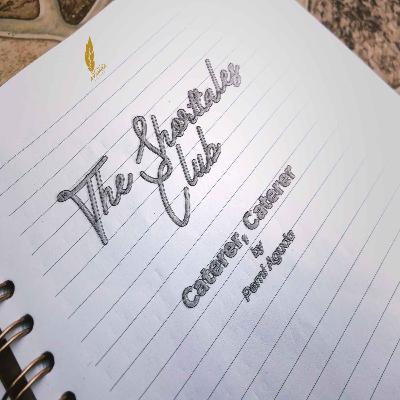 The Shorttales
Club
Caterer, Caterer
by
Pemi Aguda